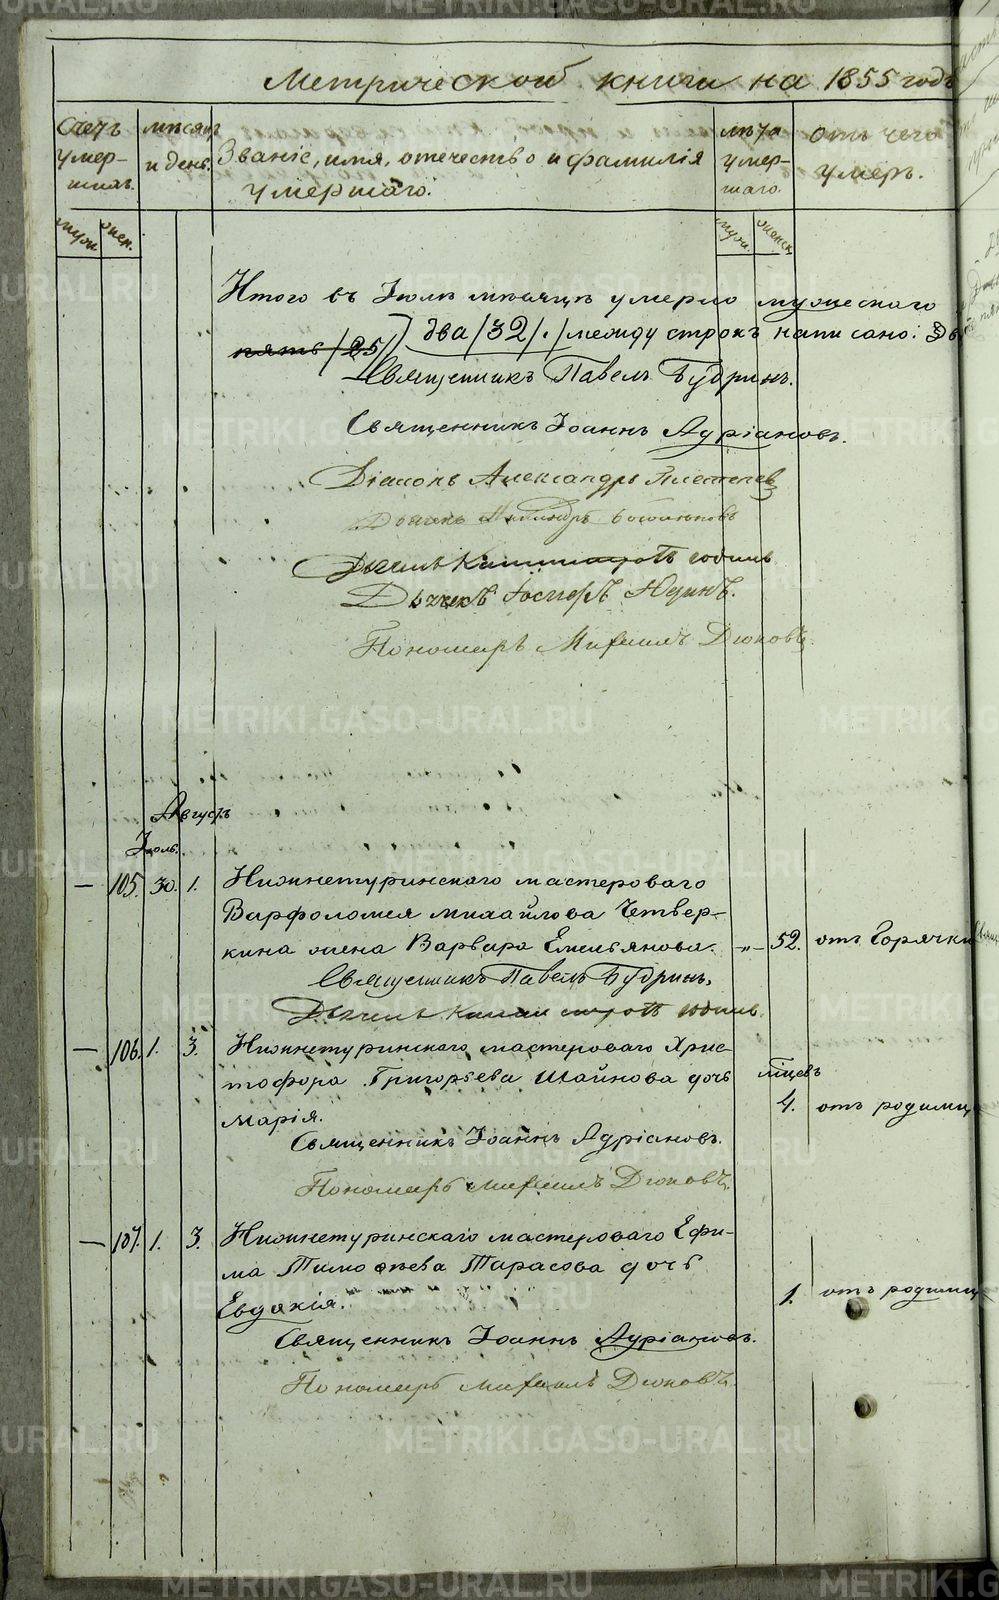 Метрической книги на 1855 годъ
Счетъ умер-шихъ.
мѣсяцъ и день.
Званіе, имя, отечество и фамилія умершаго.
лѣта умер-шаго.
отъ чего умеръ.
муж.
женск.
муж.
женск.
Итого въ Іюлѣ мѣсяцѣ умерло мужескаго
пять /25/ два /32/. / между строкъ написано: дв
Священникъ Павелъ Будринъ.
Священникъ Іоаннъ Адріановъ.
Діаконъ Александръ
Дьячекъ
Дьячекъ
Дьячекъ Іосифъ Юдинъ.
Пономарь Михаилъ Дюковъ.
Августъ
Іюль.
— 105. 30. 1. Нижнетуринскаго мастероваго
Варфоломея михайлова Четвер-
кина жена Варвара Емельянова. „ 52. отъ Горячки
Священникъ Павелъ Будринъ.
Дьячекъ
— 106. 1. 3. Нижнетуринскаго мастероваго Хрис-
тофора Григорьева Шайнова дочь мѣсяцевъ
Марія. 4. отъ родимца
Священникъ Іоаннъ Адріановъ.
Пономарь Михаилъ Дюковъ.
— 107. 1. 3. Нижнетуринскаго мастероваго Ефи-
ма Тимофѣева Тарасова дочь
Евдокія. 1. отъ родимца
Священникъ Іоаннъ Адріановъ.
Пономарь Михаилъ Дюковъ.
METRIKI.GASO-URAL.RU